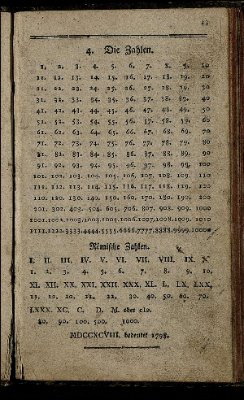 4. Die Zahlen.
1. 2. 3. 4. 5. 6. 7. 8. 9. 10
11. 12. 13. 14. 15. 16. 17. 18. 19. 20
21. 22. 23. 24. 25. 26. 27. 28. 29. 30
31. 32. 33. 34. 35. 36. 37. 38. 39. 40
41. 42. 43. 44. 45. 46. 47. 48. 49. 50
51. 52. 53. 54. 55. 56. 57. 58. 59. 60
61. 62. 63. 64. 65. 66. 67. 68. 69. 70
71. 72. 73. 74. 75. 76. 77. 78. 79. 80
81. 82. 83. 84. 85. 86. 87. 88. 89. 90
91. 92. 93. 94. 95. 96. 97. 98. 99. 100
101. 102. 103. 104. 105. 106. 107. 108. 109. 110
111. 112. 113. 114. 115. 116. 117. 118. 119. 120
110. 120. 130. 140. 150. 160. 170. 180. 190. 200
201. 302. 403. 504. 605. 706. 807. 908. 909. 1000
1001. 1002. 1003. 1004. 1005. 1006. 1007. 1008. 1009. 1010
1111. 2222. 3333. 4444. 5555. 6666. 7777. 8888. 9999.
Römische Zahlen.
I. II. III. IV. V. VI. VII. VIII. IX. X
1. 2. 3. 4. 5. 6. 7. 8. 9. 10.
XI. XII. XX. XXI. XXII. XXX. XL. L. LX. LXX,
11. 12. 20. 21. 22. 30. 40. 50. 60. 70.
LXXX. XC. C. D. M. oder cIɔ.
80. 90. 100. 500. 1000.
MDCCXCVIII. bedeutet 1798.